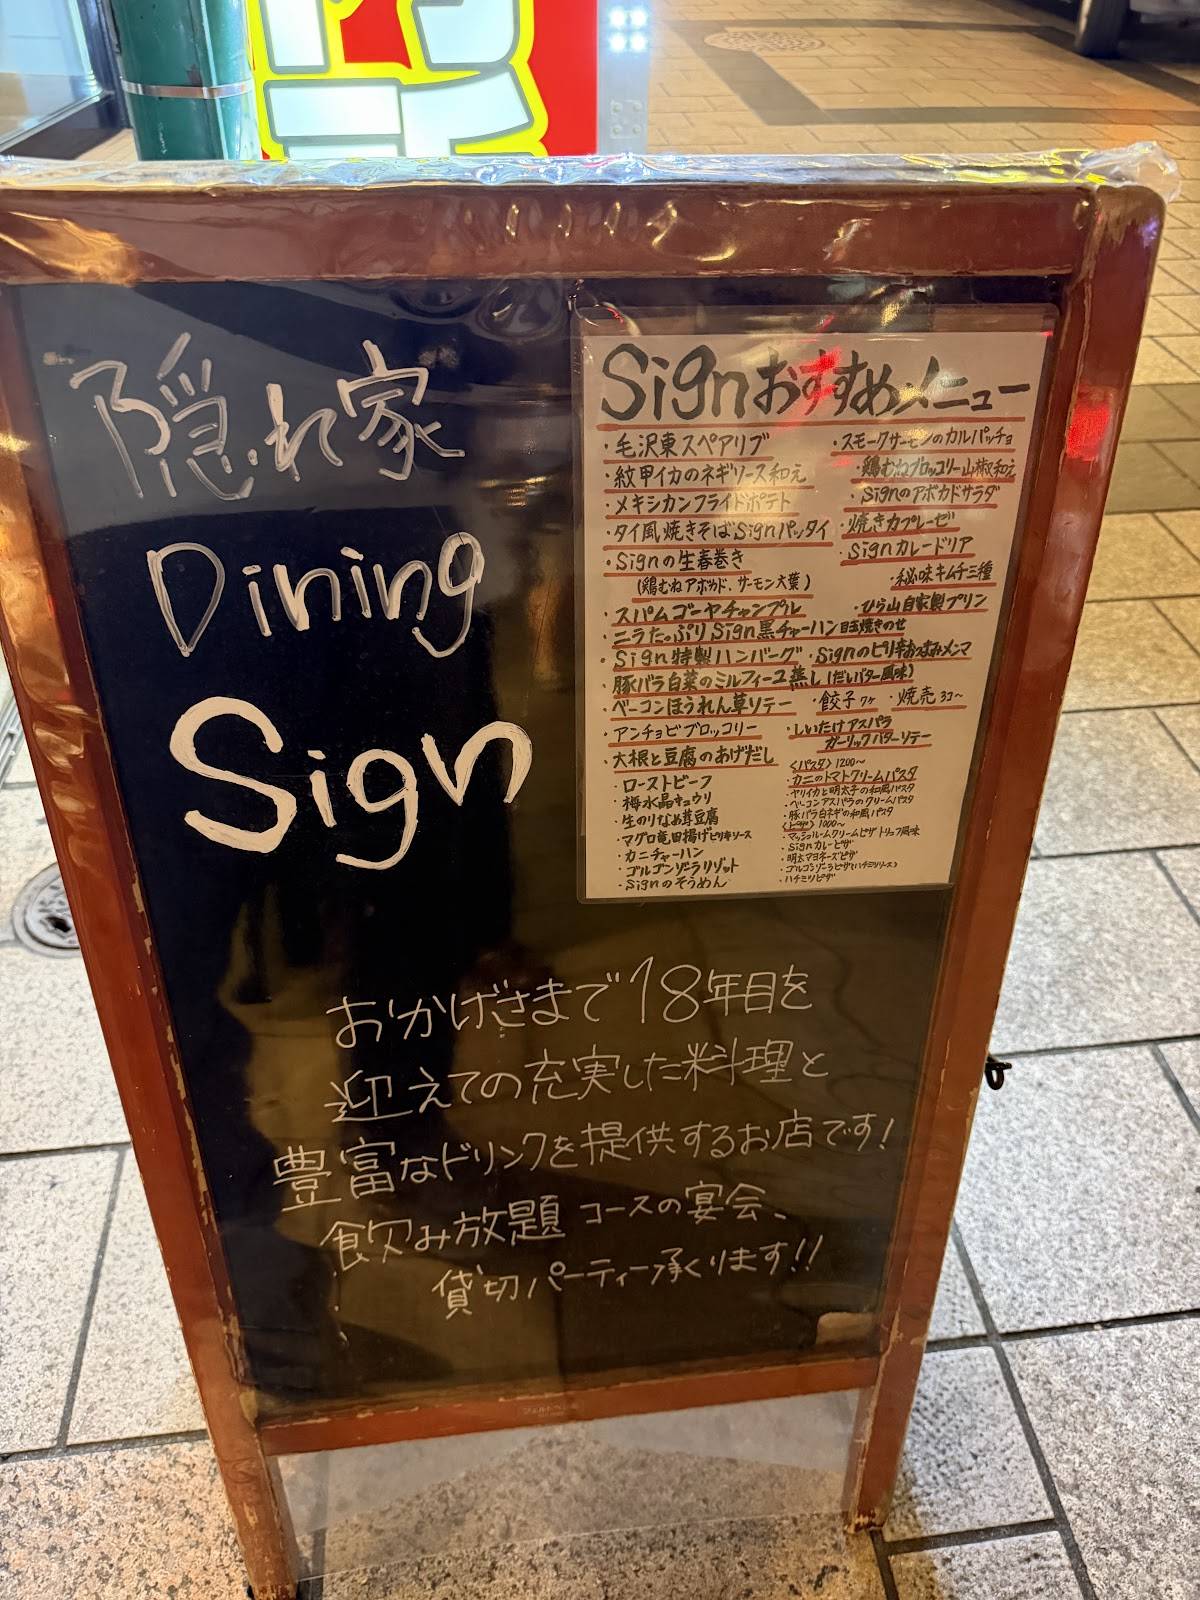 隠れ家
Dining
Sign
Signおすすめメニュー
・毛沢東スペアリブ
・紋甲イカのネギソース和え
・メキシカンフライドポテト
・タイ風焼きそばSignパッタイ
・Signの生春巻き
(鶏むねアボカド、サーモン大葉)
・スパムゴーヤチャンプル
・ニラたっぷりSign黒チャーハン目玉焼きのせ
・Sign特製ハンバーグ ・Signのピリ辛おつまみメンマ
・豚バラ白菜のミルフィーユ蒸し(だしバター風味)
・ベーコンほうれん草ソテー ・餃子7ヶ ・焼売3コ~
・アンチョビブロッコリー
・大根と豆腐のあげだし
・ローストビーフ
・梅水晶キュウリ
・生のりなめ茸豆腐
・マグロ竜田揚げピリキソース
・カニチャーハン
・ゴルゴンゾーラリゾット
・Signのそうめん
・スモークサーモンのカルパッチョ
・鶏むねブロッコリー山椒和え
・Signのアボカドサラダ
・焼きカプレーゼ
・Signカレードリア
・秘味キムチ三種
・ひら山自家製プリン
・しいたけアスパラ
ガーリックバターソテー
<パスタ>1200~
・カニのトマトクリームパスタ
・ヤリイカと明太子の和風パスタ
・ベーコンアスパラのクリームパスタ
・豚バラ白ネギの和風パスタ
<ピザ>1000~
・マッシュルームクリームピザ トリュフ風味
・Signカレーピザ
・明太マヨネーズピザ
・ゴルゴンゾーラピザ(ハチミツソース)
・ハチミツピザ
おかげさまで18年目を
迎えての充実した料理と
豊富なドリンクを提供するお店です!
飲み放題 コースの宴会、
貸切パーティー承ります!!